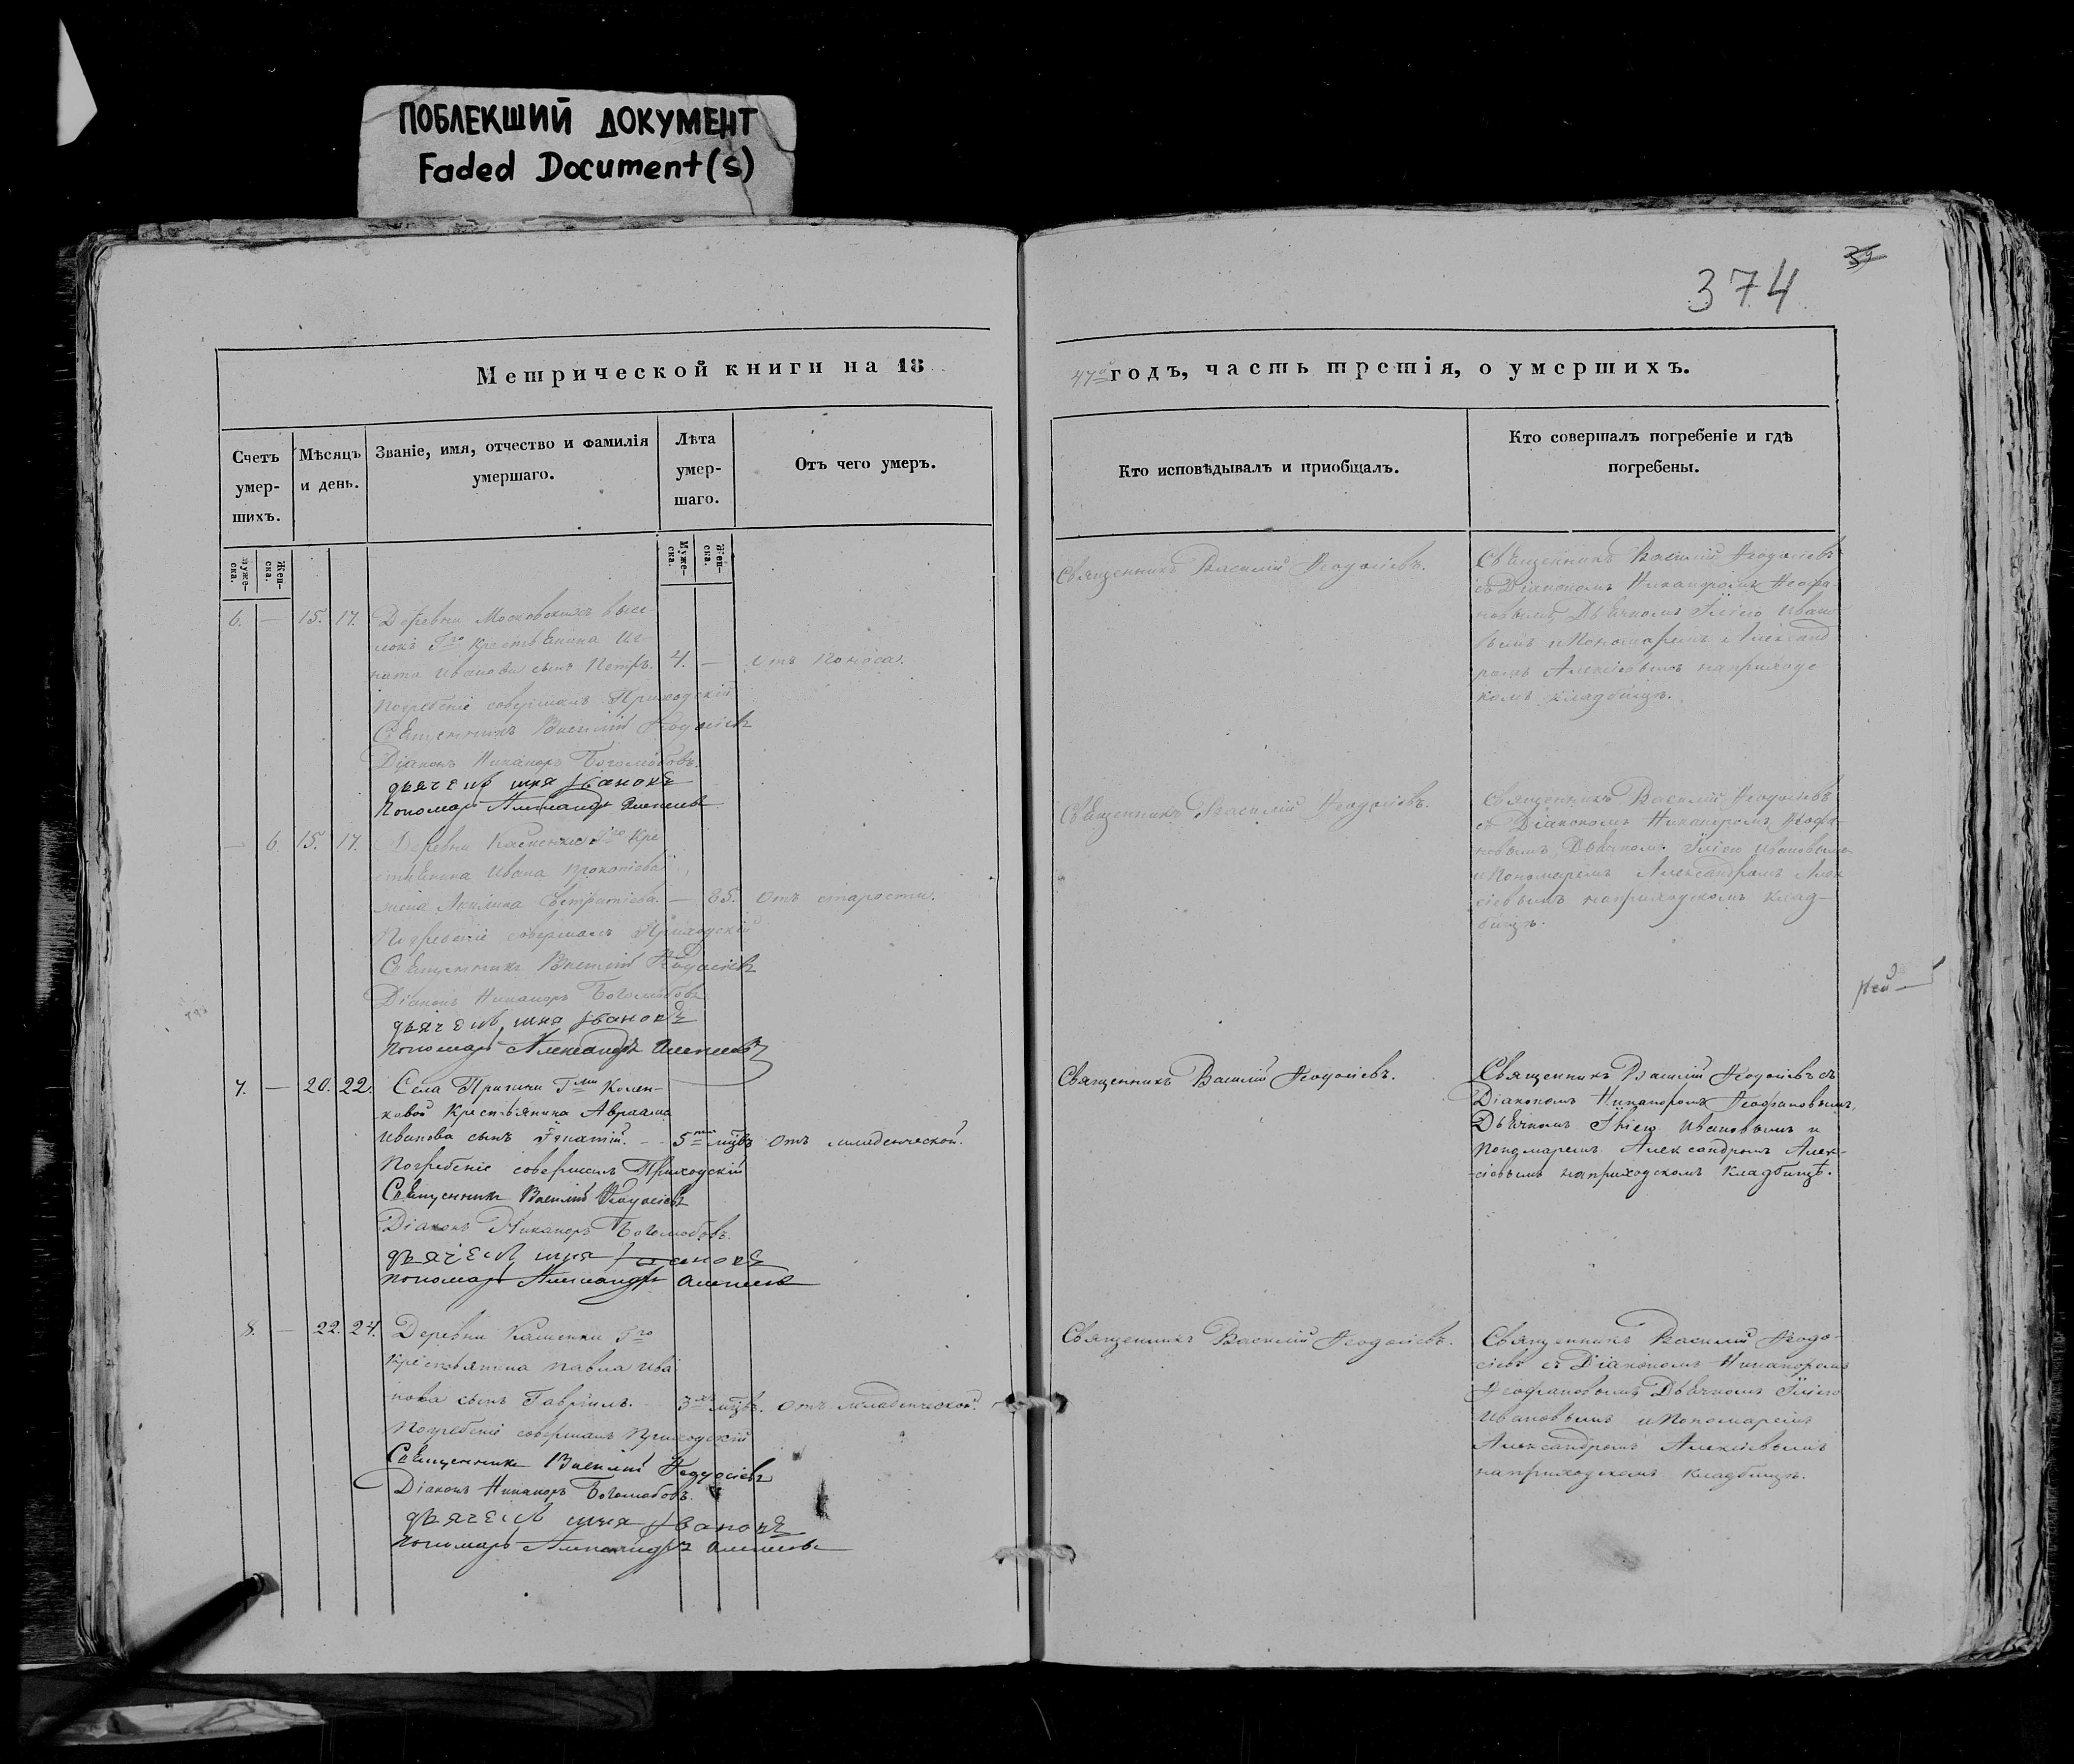 ПОБЛЕКШИЙ ДОКУМЕНТ
Faded Document(s)
374
39
Метрической книги на 18
47й годъ, часть третія, о умершихъ.
Счетъ умер-шихъ.
Мѣсяцъ и день.
Званіе, имя, отчество и фамилія умершаго.
Лѣта умер-шаго.
Отъ чего умеръ.
Кто исповѣдывалъ и приобщалъ.
Кто совершалъ погребеніе и гдѣ погребены.
Муже-ска.
Жен-ска.
Муже-ска.
Жен-ска.
6. — 15. 17. Деревни Московскихъ высе-
локъ Гго крестьянина Иг-
ната Иванова сынъ Петръ. 4. — отъ поноса.
Погребеніе совершалъ Приходскій
Священникъ Василій Ѳеодосіевъ
Діаконъ Никаноръ Боголюбовъ.
дьячекъ илья Ивановъ
Пономарь Александръ Алексеевъ
Священникъ Василій Ѳеодосіевъ.
Священникъ Василій Ѳеодосіевъ
съ Діакономъ Никаноромъ Ѳеофа-
новымъ, Дьячкомъ Іліею Ивано-
вымъ и Пономаремъ Александ-
ромъ Алексіевымъ на приходс-
комъ кладбищѣ.
— 6. 15. 17. Деревни Каменки Гго Кре-
стьянина Ивана Прокопіева
жена Акилина Евстратіева. — 85. Отъ старости.
Погребеніе совершалъ Приходскій
Священникъ Василій Ѳеодосіевъ
Діаконъ Никаноръ Боголюбовъ.
дьячекъ илья Ивановъ
пономарь Александръ Алексеевъ
Священникъ Василій Ѳеодосіевъ.
Священникъ Василій Ѳеодосіевъ
съ Діакономъ Никаноромъ Ѳеофа-
новымъ, Дьячкомъ Іліею Ивановымъ
и Пономаремъ Александромъ Алек-
сіевымъ на приходскомъ клад-
бищѣ.
7. — 20. 22. Села
Крестьянина Авраама
Иванова сынъ Ігнатій. — 5ти мцвъ Отъ младенческой.
Погребеніе совершалъ Приходскій
Священникъ Василій Ѳеодосіевъ
Діаконъ Никаноръ Боголюбовъ.
дьячекъ илья Ивановъ
пономарь Александръ Алексеевъ
Священникъ Василій Ѳеодосіевъ.
Священникъ Василій Ѳеодосіевъ съ
Діакономъ Никаноромъ Ѳеофановымъ,
Дьячкомъ Іліею Ивановымъ и
Пономаремъ Александромъ Алек-
-сіевымъ на приходскомъ Кладбищѣ.
8. — 22. 24. Деревни Каменки Гго
Крестьянина Павла Ива-
нова сынъ Гавріилъ. — 3хъ мцвъ. Отъ младенческой.
Погребеніе совершалъ Приходскій
Священникъ Василій Ѳеодосіевъ
Діаконъ Никаноръ Боголюбовъ.
дьячекъ илья Ивановъ
Пономарь Александръ Алексеевъ
Священникъ Василій Ѳеодосіевъ.
Священникъ Василій Ѳеодо-
сіевъ съ Діакономъ Никаноромъ
Ѳеофановымъ Дьячкомъ Іліею
Ивановымъ и Пономаремъ
Александромъ Алексіевымъ
на приходскомъ кладбищѣ.